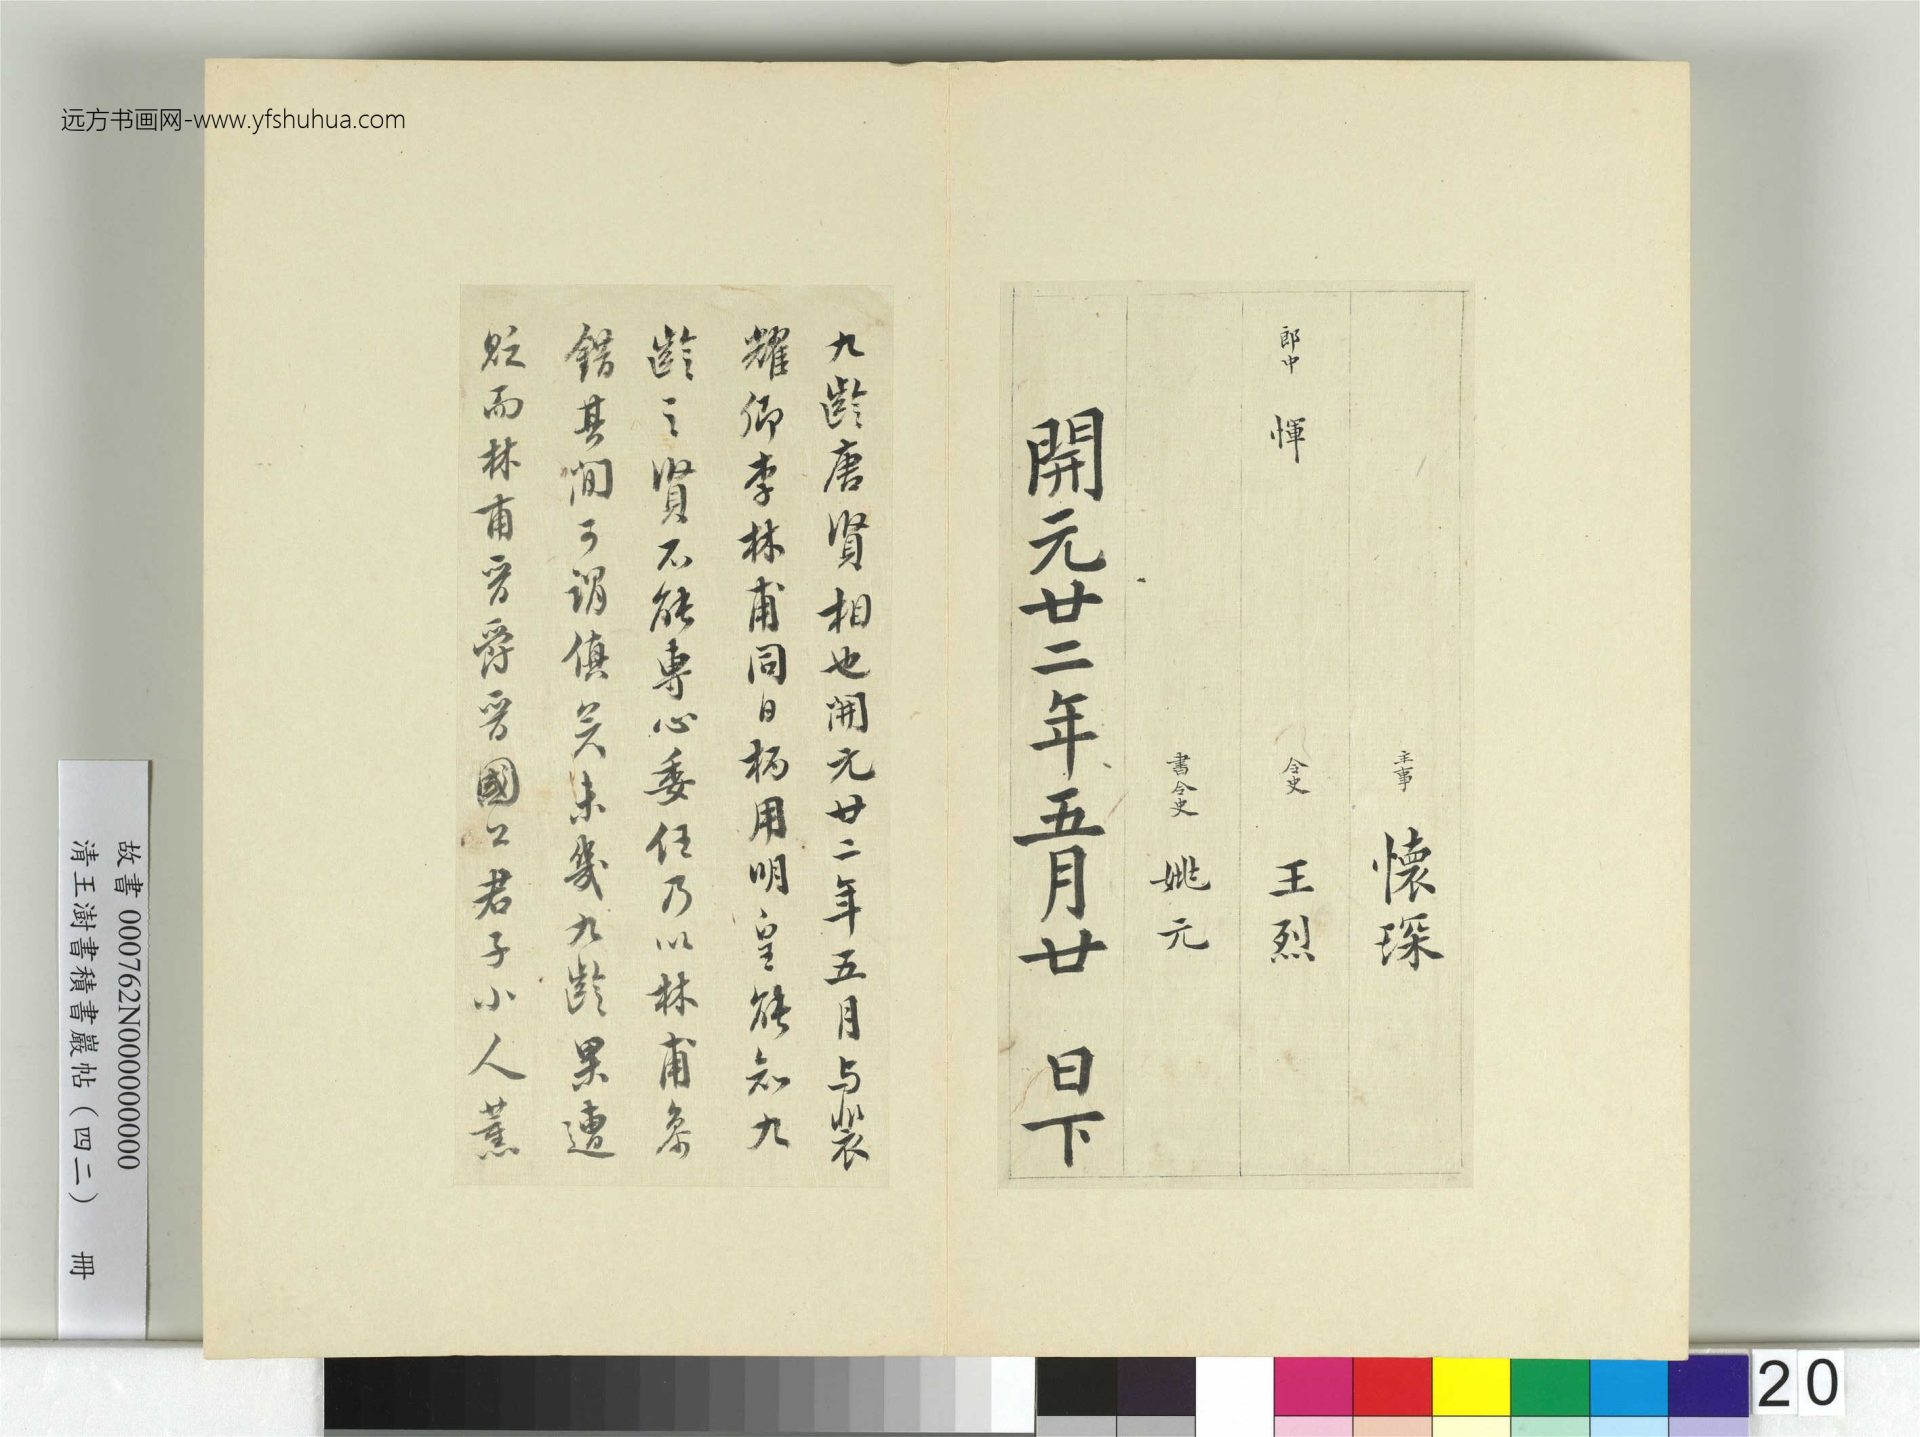 远方书画网-www.yfshuhua.com
主事 懷琛
郎中 惲 令史 王烈
書令史 姚元
開元廿二年五月廿 日下
九齡唐賢相也開元廿二年五月与裴
耀卿李林甫同日柄用明皇能知九
齡之賢不能專心委任乃以林甫參
錯其間可謂慎矣未幾九齡果遭
貶而林甫晉爵晉國公君子小人薰
故書 000762N000000000
清王澍書積書巖帖(四二) 冊
20